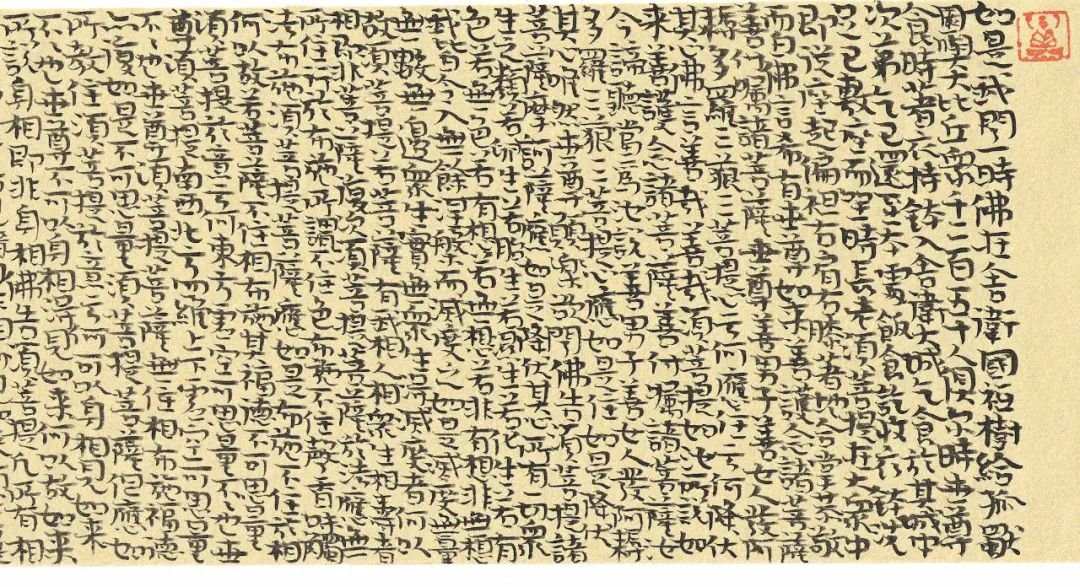 如是我聞一時佛在舍衛國祇樹給孤獨
園與大比丘衆千二百五十人俱尒時世尊
食時著衣持鉢入舍衛大城乞食於其城中
次第乞已還至本處飯食訖收衣鉢洗
足已敷座而坐時長老須菩提在大衆中
即從座起偏袒右肩右膝著地合掌恭敬
而白佛言希有世尊如來善護念諸菩薩
善付囑諸菩薩世尊善男子善女人發阿
耨多羅三藐三菩提心云何應住云何降伏
其心佛言善哉善哉須菩提如汝所說如
來善護念諸菩薩善付囑諸菩薩汝
今諦聽當爲汝說善男子善女人發阿耨
多羅三藐三菩提心應如是住如是降伏
其心唯然世尊願樂欲聞佛告須菩提諸
菩薩摩訶薩應如是降伏其心所有一切衆
生之類若卵生若胎生若濕生若化生若有
色若無色若有想若無想若非有想非無想
我皆令入無餘涅槃而滅度之如是滅度無量
無數無邊衆生實無衆生得滅度者何以
故須菩提若菩薩有我相人相衆生相壽者
相即非菩薩復次須菩提菩薩於法應無
所住行於布施所謂不住色布施不住聲香味觸
法布施須菩提菩薩應如是布施不住於相
何以故若菩薩不住相布施其福德不可思量
須菩提於意云何東方虛空可思量不不也世
尊須菩提南西北方四維上下虛空可思量
不不也世尊須菩提菩薩無住相布施福德
亦復如是不可思量須菩提菩薩但應如
所教住須菩提於意云何可以身相見如來
不不也世尊不可以身相得見如來何以故如來
所說身相即非身相佛告須菩提凡所有相